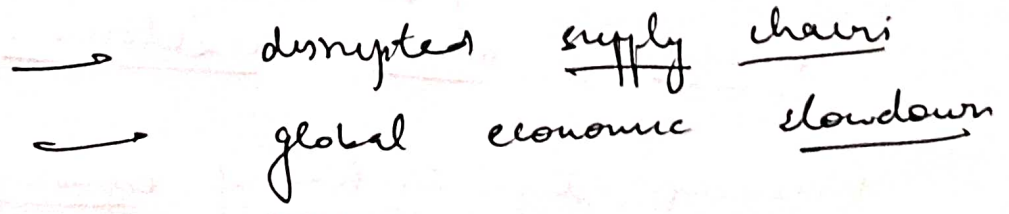 → disrupted supply chain
→ global economic slowdown